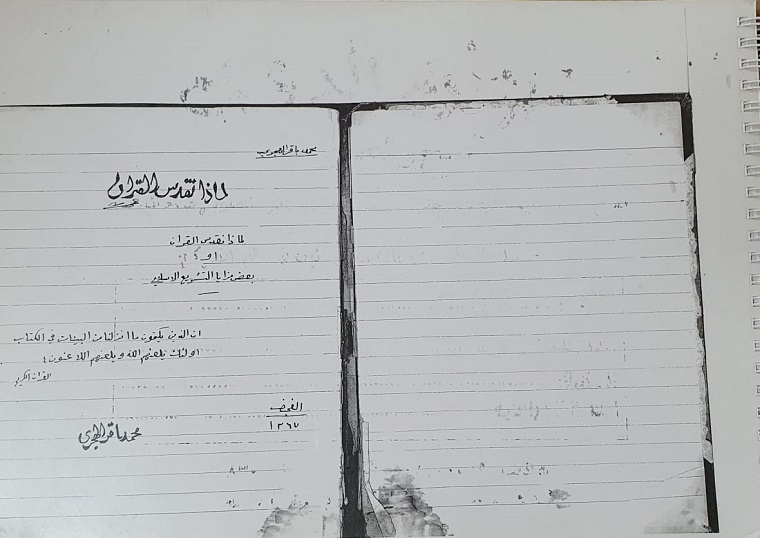 محمد باقر
لماذا نقدس القران
لماذا نقدس القران
او
بعض مزايا التشريع الاسلامي
ان الذين يكتمون ما انزلنا من البينات في الكتاب
اولئك يلعنهم الله ويلعنهم اللاعنون ؛
القران الكريم
النجف
١٣٦٧
محمد باقر